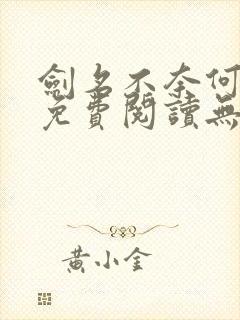 劍名不奈何
免費閱讀無
黃小金